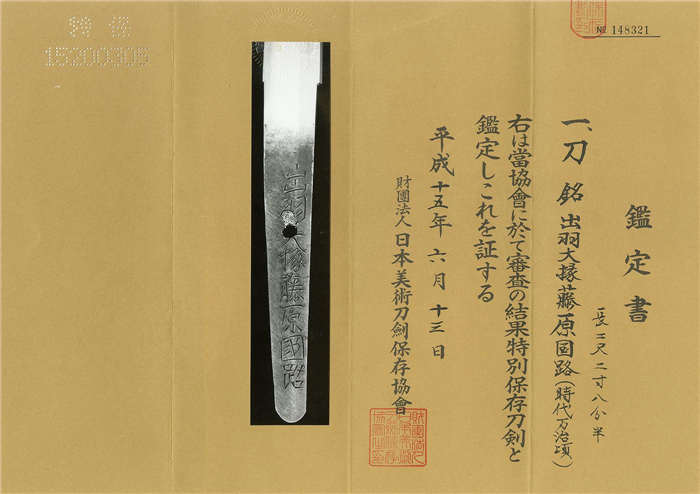 № 148321
特保
15200305
鑑定書
一、刀 銘 出羽大掾藤原国路(時代万治頃)
長二尺二寸八分半
右は當協會に於て審査の結果特別保存刀剣と
鑑定しこれを証する
平成十五年六月十三日
財團法人 日本美術刀劍保存協會
出羽大掾藤原國路